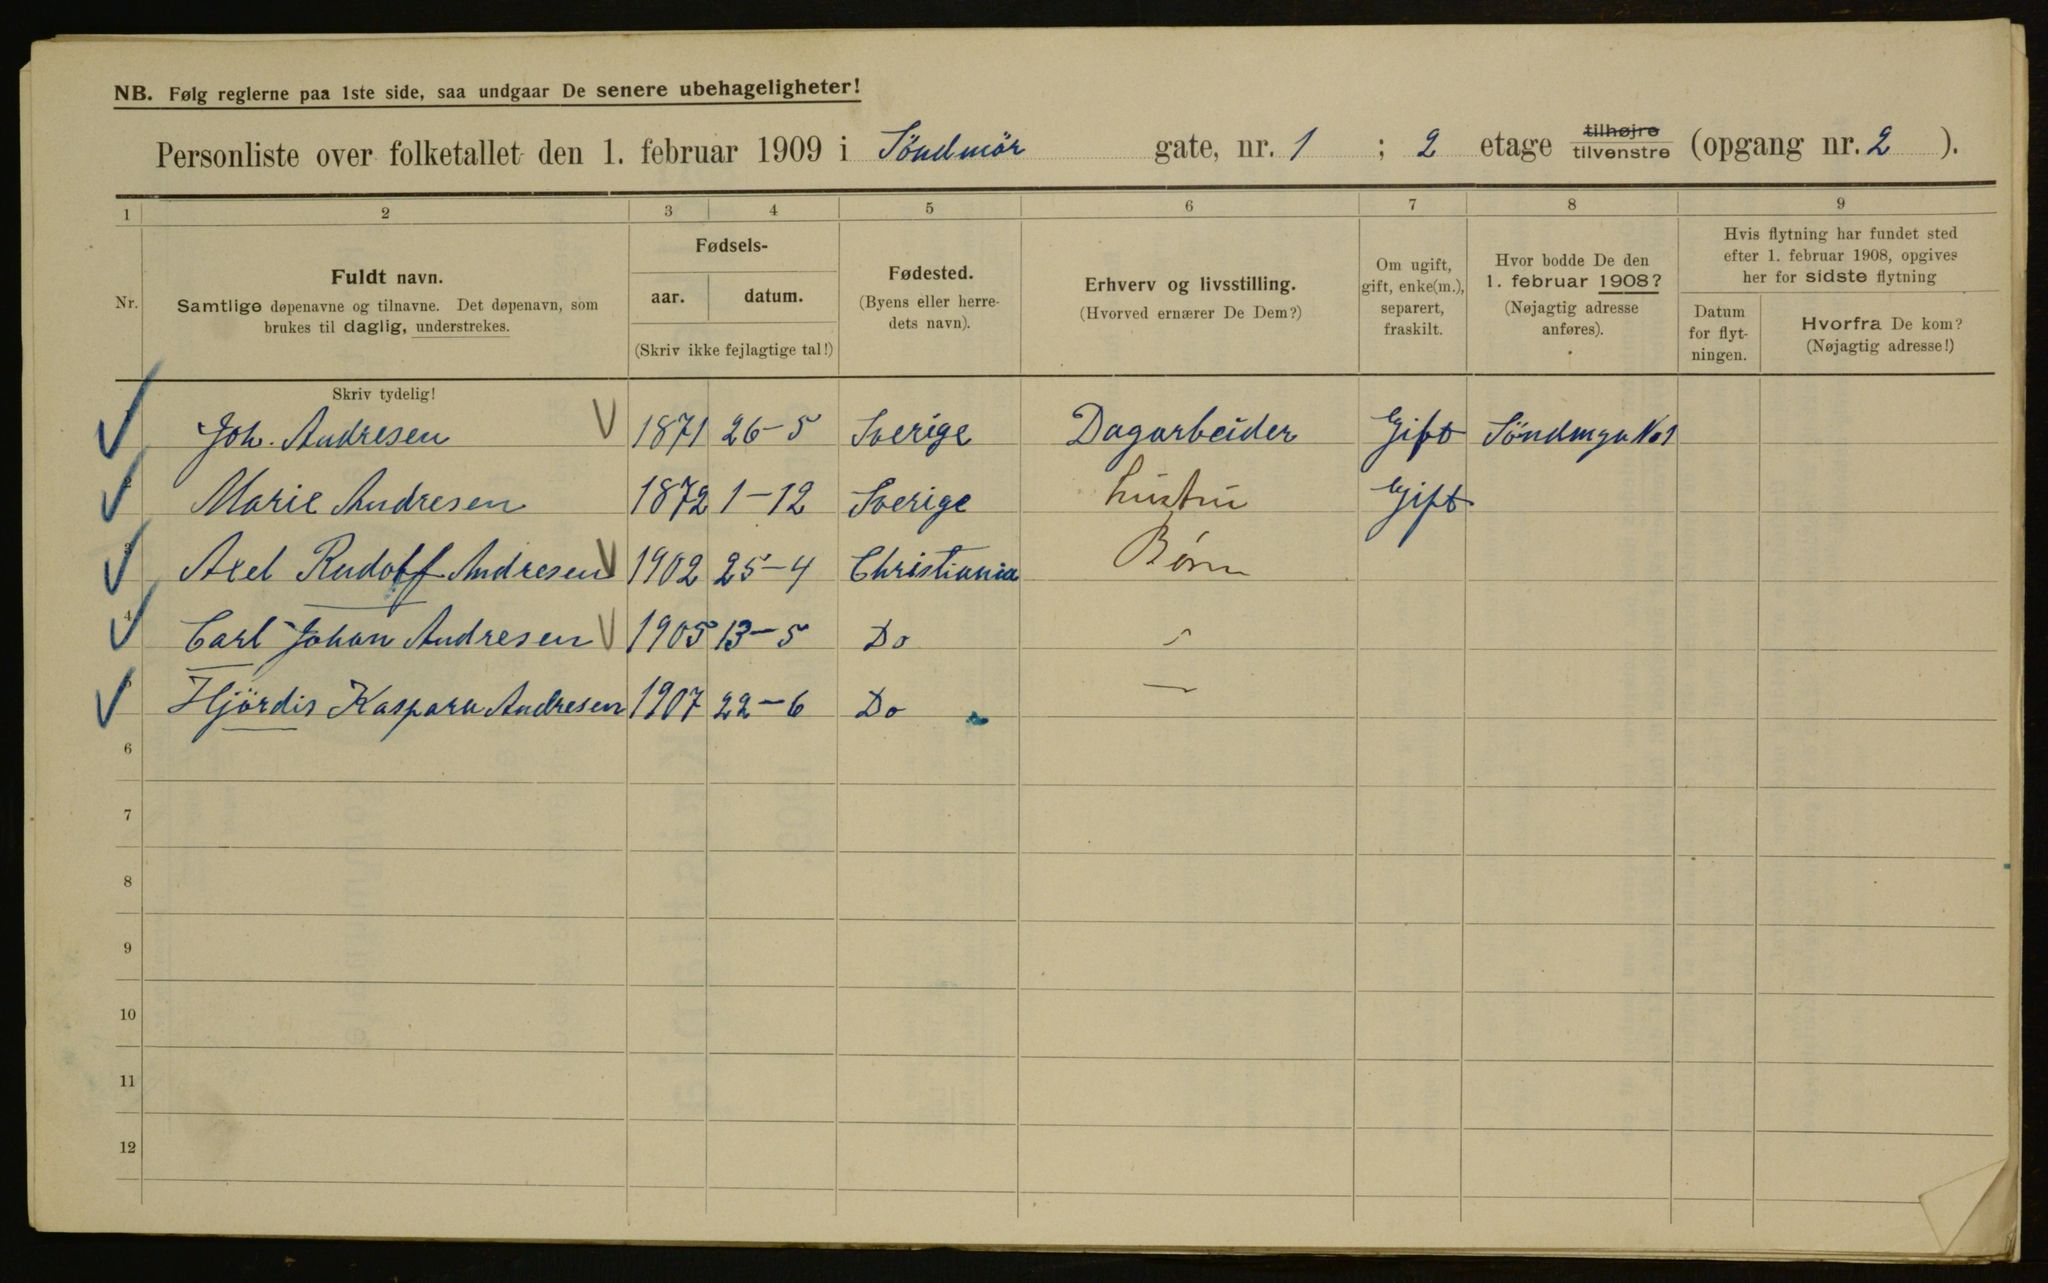 NB. Følg reglerne paa 1ste side, saa undgaar De senere ubehageligheter!
Personliste over folketallet den 1. februar 1909 i Söndmör gate, nr. 1 ; 2 etage tilhøjre tilvenstre (opgang nr. 2 ).
1 2 3 4 5 6 7 8 9
Nr.
Fuldt navn.
Samtlige døpenavne og tilnavne. Det døpenavn, som
brukes til daglig, understrekes.
Fødsels-
aar. datum.
(Skriv ikke fejlagtige tal!)
Fødested.
(Byens eller herre-
dets navn).
Erhverv og livsstilling.
(Hvorved ernærer De Dem?)
Om ugift,
gift, enke(m.),
separert,
fraskilt.
Hvor bodde De den
1. februar 1908?
(Nøjagtig adresse
anføres).
Hvis flytning har fundet sted
efter 1. februar 1908, opgives
her for sidste flytning
Datum
for flyt-
ningen.
Hvorfra De kom?
(Nøjagtig adresse!)
Skriv tydelig!
Joh. Andresen 1871 26-5 Sverige Dagarbeider Gift No 1
Marie Andresen 1872 1-12 Sverige hustru Gift
3 Axel Rudolf Andresen 1902 25-4 Christiania Børn
4 Carl Johan Andresen 1905 13-5 Do
5 Hjördis Kaspara Andresen 1907 22-6 Do —
6
7
8
9
10
11
12